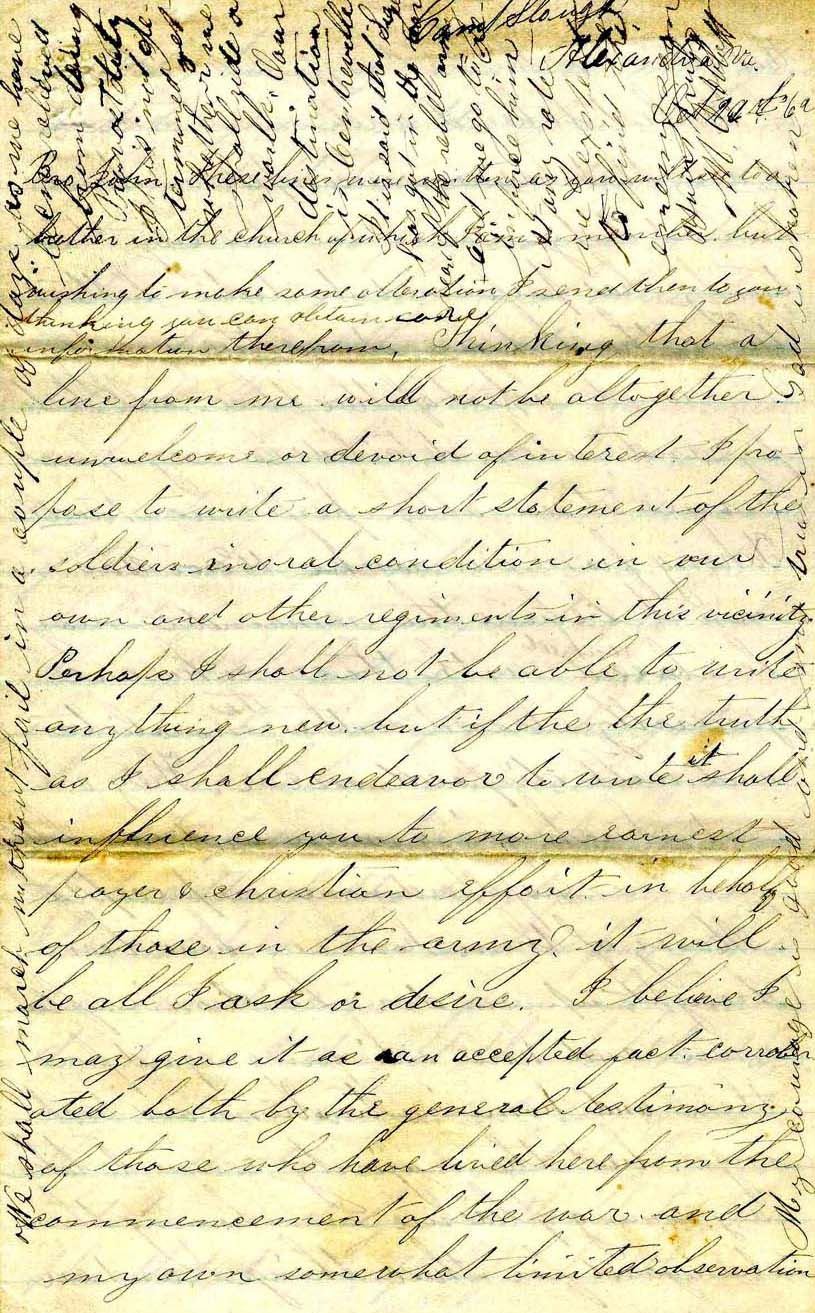 Camp Slough
Alexandria Va.
Oct 62
Bro These lines were written as you will see to a
brother in the church of which I am a member. but
wishing to make some alteration I send them to you
thinking you can obtain some
information therefrom. Thinking that a
line from me will not be altogether
unwelcome or devoid of interest. I pro-
pose to write a short statement of the
soldiers moral condition in our
own and other regiments in this vicinity.
Perhaps I shall not be able to write
anything new. but if the the truth
as I shall endeavor to write it shall
influence you to more earnest
prayer & christian effort in behalf
of those in the army. it will
be all I ask or desire. I believe I
may give it as an accepted fact. corrobor
ated both by the general testimony
of those who have lived here from the
commencement of the war and
my own somewhat limited observation
We shall march without fail in a couple of days as we have
been relieved
from doing
duty
It is not de-
termined yet
whether we
shall ride or
walk. Our
destination
is Centreville
It is said that
has got in the rear
of the rebel army
and we go to
him
at any rate
we expect
to find
enemy soon
My courage is good and I am trusting in God